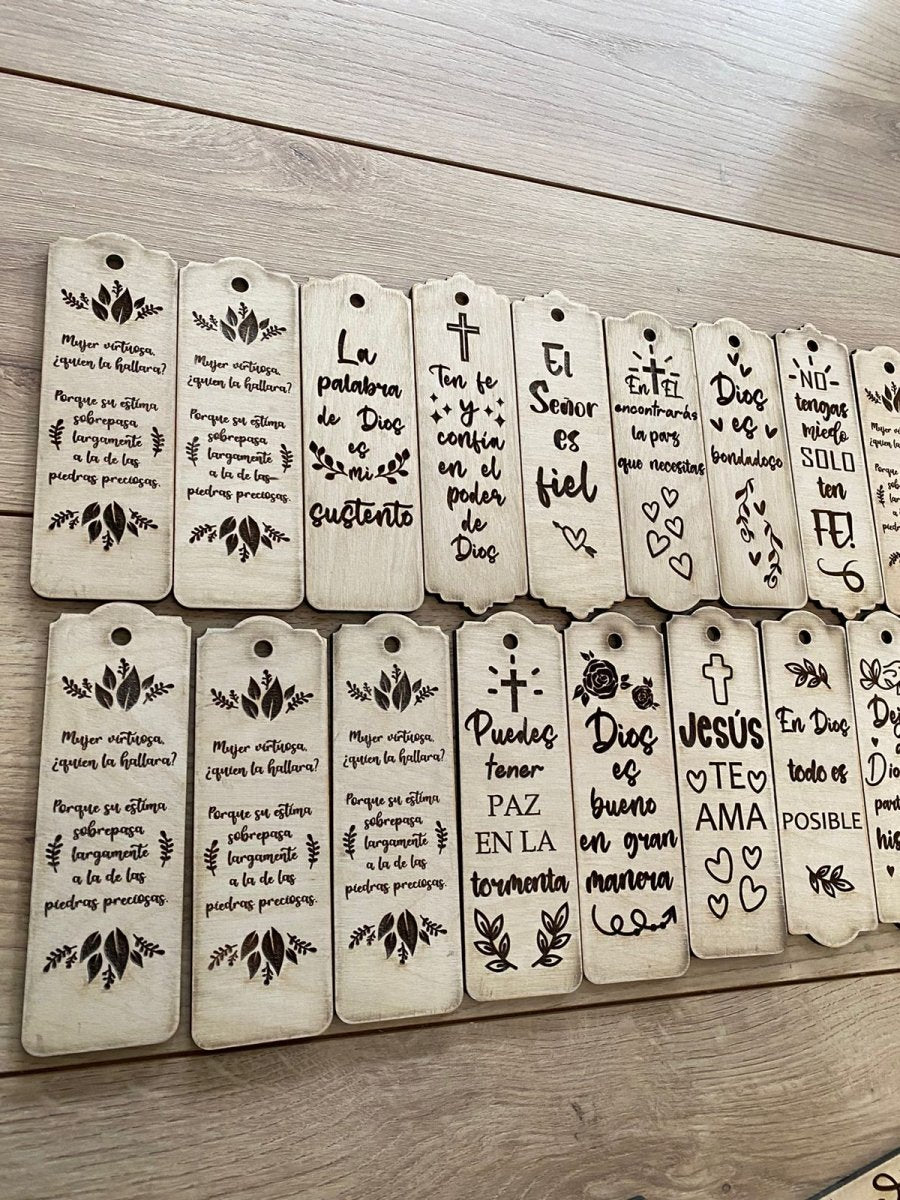 Mujer virtuosa,
¿quien la hallara?
Porque su estima
sobrepasa
largamente
a la de las
piedras preciosas.
Mujer virtuosa,
¿quien la hallara?
Porque su estima
sobrepasa
largamente
a la de las
piedras preciosas.
La
palabra
de Dios
es
mi
sustento
Ten fe
y
confía
en el
poder
de
Dios
El
Señor
es
fiel
En El
encontrarás
la paz
que necesitas
Dios
es
bondadoso
NO
tengas
miedo
SOLO
ten
FE!
Mujer virtuosa,
¿quien la hallara?
Porque su estima
sobrepasa
largamente
a la de las
piedras preciosas.
Mujer virtuosa,
¿quien la hallara?
Porque su estima
sobrepasa
largamente
a la de las
piedras preciosas.
Mujer virtuosa,
¿quien la hallara?
Porque su estima
sobrepasa
largamente
a la de las
piedras preciosas.
Puedes
tener
PAZ
EN LA
tormenta
Dios
es
bueno
en gran
manera
Jesús
TE
AMA
En Dios
todo es
POSIBLE